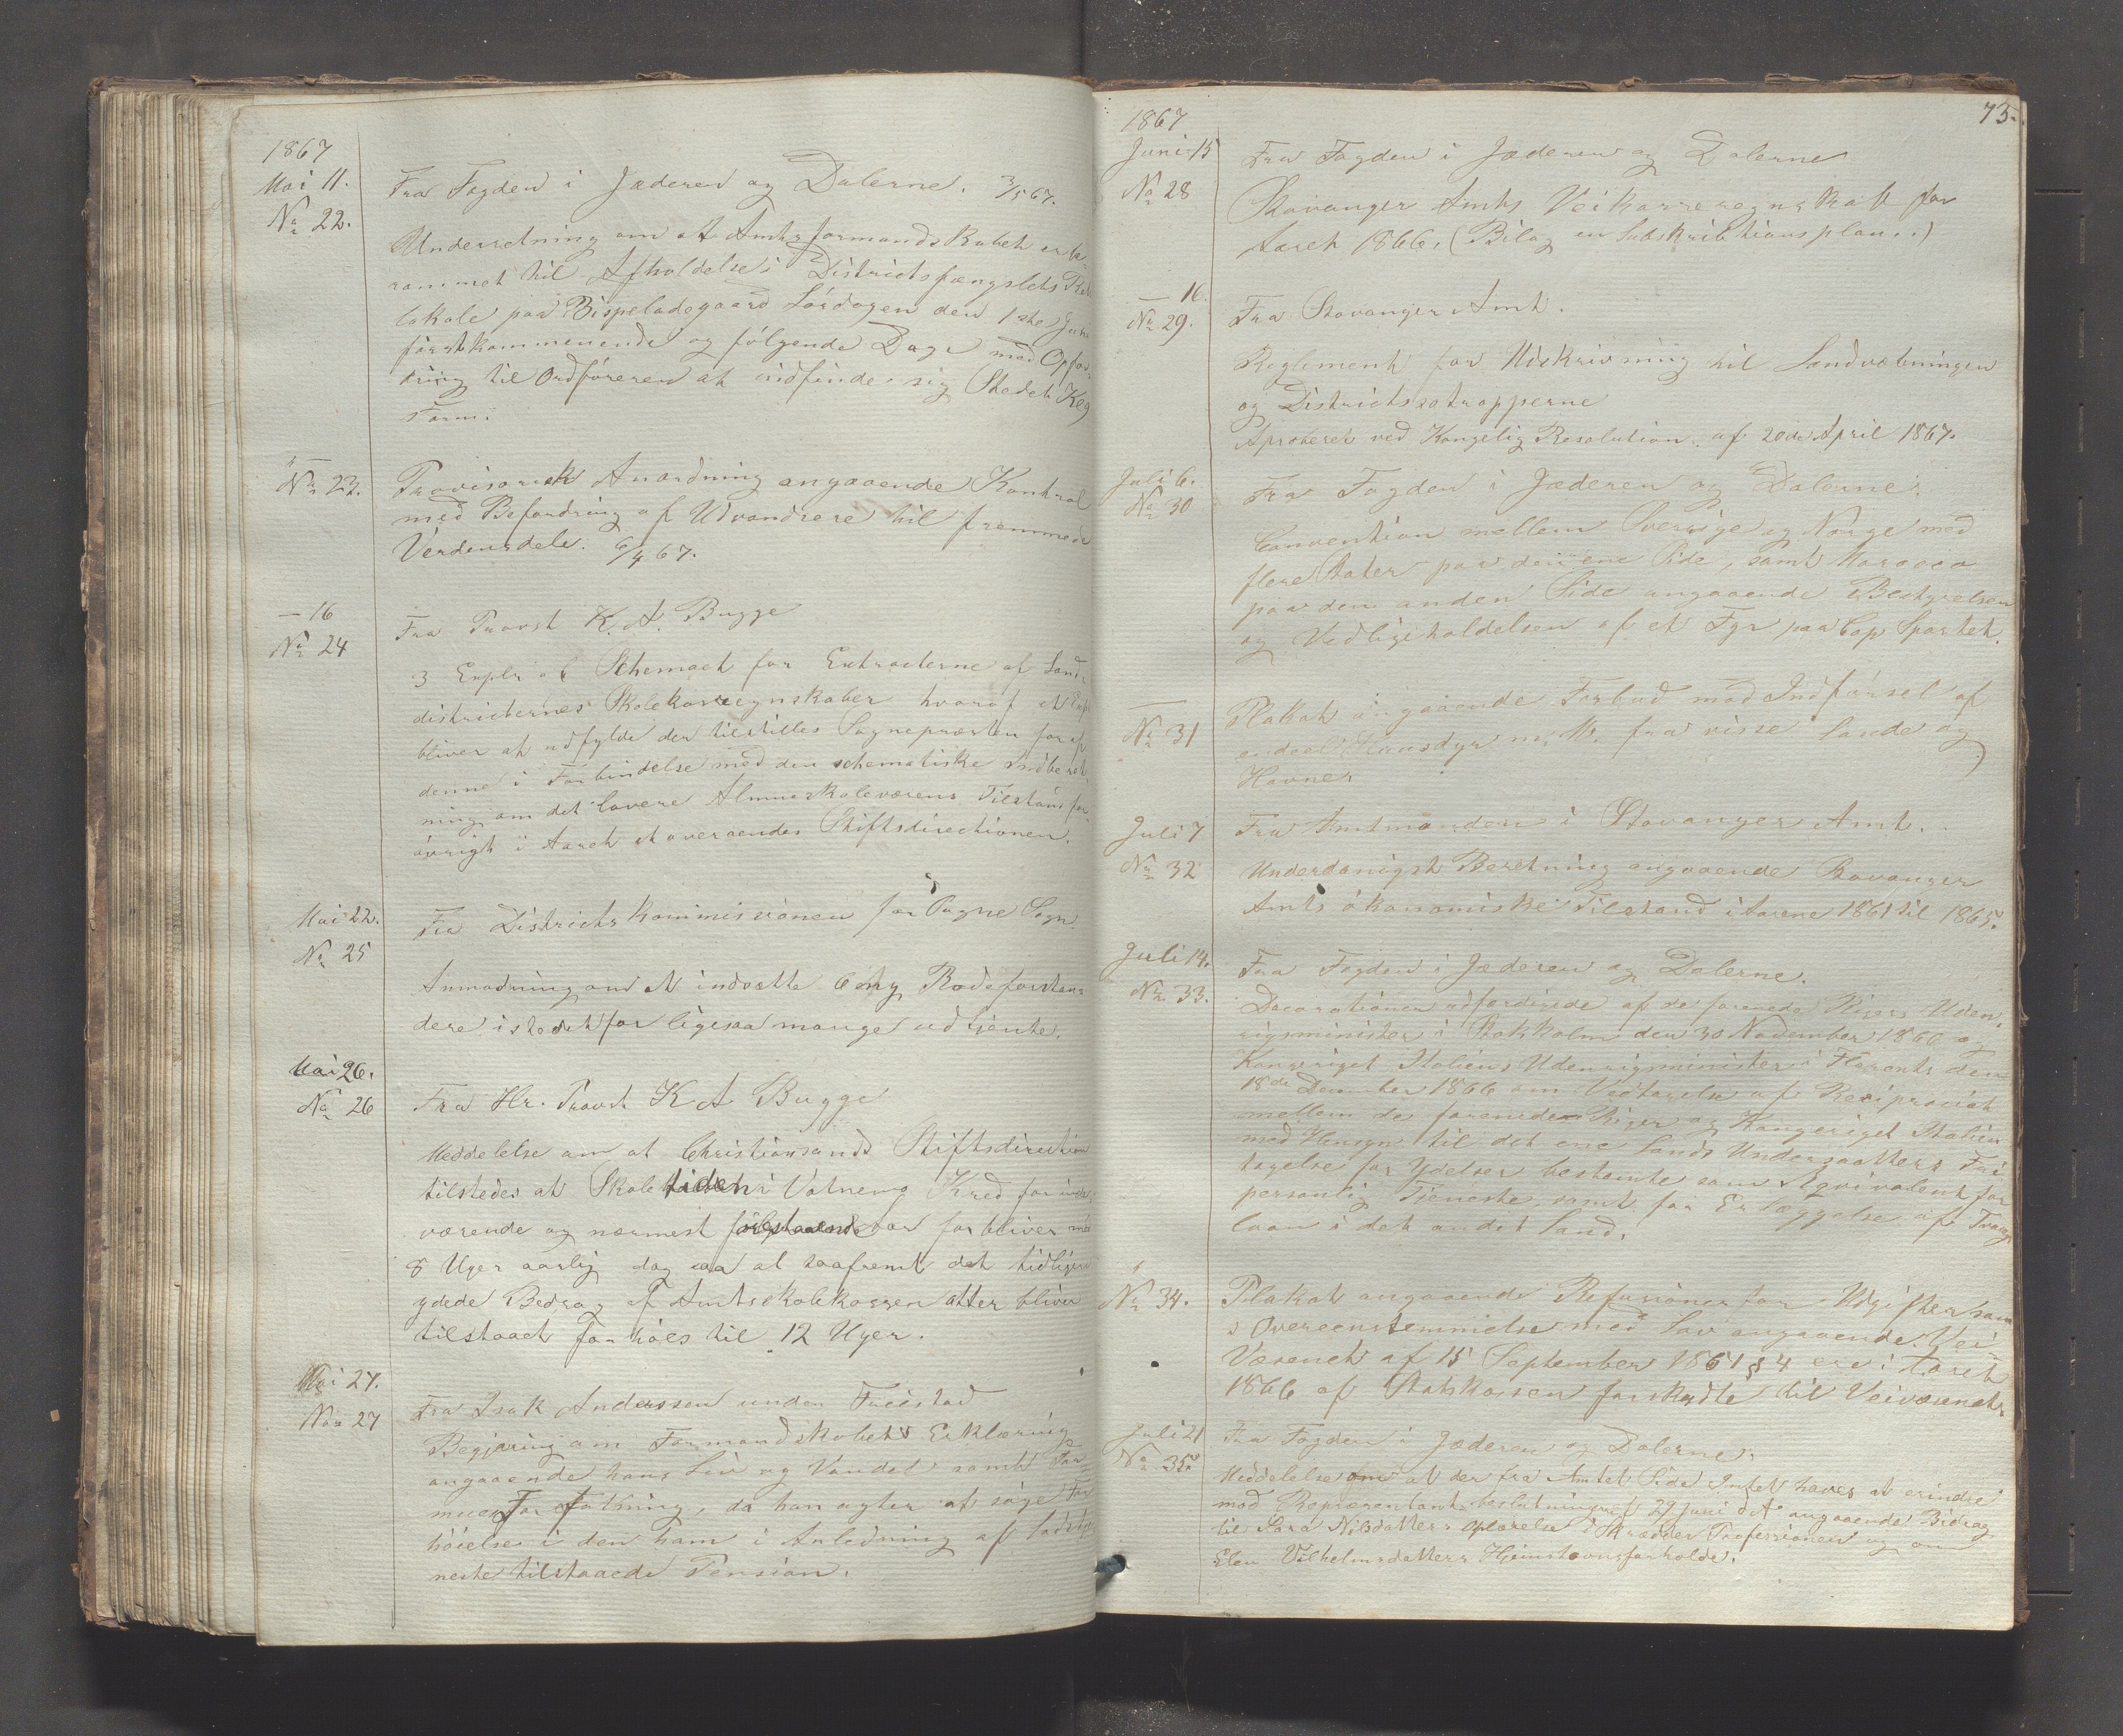 1867
Mai 11.
No 22.
Fra Fogden i Jæderen og Dalerne. 3/5 67.
Underretning om at Amtsformandskabet er be-
rammet til Afholdelse i Districtsfængslets
lokale paa Bispeladegaard Lørdagen den 1ste Juni
førstkommenende og følgende Dage med Opfor-
dring til Ordføreren at indfinde sig Stedet Kl 9
Form:
No 23.
Provisorisk Anordning angaaende Kontrol
med Befordring af Udvandrere til fremmede
Verdensdele. 6/4 67.
— 16
No 24
Fra Provst K. A. Bugge
3 Explr af Schemaet for Extracterne af Land-
districternes Skolekasseregnskaber hvoraf et Expl
bliver at udfylde der tilstilles Sognepræsten for af
denne i Forbindelse med den schematiske Indberet-
ning om det lavere Almueskolevæsens Tilstand for-
øvrigt i Aaret at oversendes Stiftsdirectionen.
Mai 22.
No 25
Fra Districtskommissionen for Sogne Sogn
Anmodning om at indsætte 6 ny Rodeforstan-
dere istedetfor ligesaa mange udtjente.
Mai 26.
No 26
Fra Hr. Provst K A Bugge
Meddelelse om at Christiansands Stiftsdirection
tilstedes at Skoletiden i Vatneng Kred for indev-
værende og nærmest førlpaaende aar forbliver med
8 Uger aarlig dog saa at saafremt det tidligere
ydede Bedrag af Amtsskolekassen atter bliver
tilstaaet forhøies til 12 Uger.
Mai 27.
No 27
Fra Isak Anderssen under Tuestad
Begjæring om Formandskabets Erklæring
angaaende hans Liv og Vandel samt For-
mues Forfatning, da han agter at søge For
høielse i den ham i Anledning af
neste tilstaaede Pension.
73.
1867
Juni 15
No 28
Fra Fogden i Jæderen og Dalerne
Stavanger Amts Veikasseregnskab for
Aaret 1866. (Bilag en Subskribtionsplan..)
— 16.
No 29.
Fra Stavanger Amt.
Reglement for Udskrivning til Landvæbningen
og Districtssotropperne
Aproberet ved Kongelig Resolution af 20de April 1867.
Juli 6.
No 30
Fra Fogden i Jæderen og Dalerne.
Convention mellem Sverrige og Norge med
flere Stater paa den ene Side, samt Marocco
paa den anden Side angaaende Bestyrelsen
og Vedligeholdelsen af et Fyr paa Cap Spartel.
—
No 31
Plakat angaaende Forbud mod Indførsel af
endeel Huusdyr m. M. fra visse Lande og
Havner
Juli 7
No 32
Fra Amtmanden i Stavanger Amt.
Underdanigst Beretning angaaende Stavanger
Amts økonomiske Tilstand i Aarene 1861 til 1865.
Juli 14.
No 33.
Fra Fogden i Jæderen og Dalerne.
Decorationen udfærdigede af de forenede Rigers Uden-
rigsminister i Stokholm den 30 November 1866 og
Kongeriget Italiens Udenrigsminister i Florents den
18de December 1866 om Vedtagelse af Reciprocitet
mellem de forenede Riger og Kongeriget Italien
med Hensyn til det ene Lands Undersaatters Fri
tagelse for Ydelser bestemte som Æqvivalent for
personlig Tjeneste samt for Erlæggelse af Tvangs
laan i det andet Land.
No 34.
Plakat angaaende Refusioner for Udgifter som
i Overeenstemmelse med Lov angaaende Vei-
Væsenet af 15 September 1851 § 4 ere i Aaret
1866 af Statskassen forskudte til Veivæsenets
Juli 21
No 35
Fra Fogden i Jæderen og Dalerne.
Meddelelse om at der fra Amtets Side Intet haves at erindre
mod Repræsentantbeslutningen af 29 Juni d A angaaende Bidrag
til Sara Nilsdatters Oplærelse i Skrædder Professionen og om
Elen Vilhelmsdatters Hjemstavnsforholde.